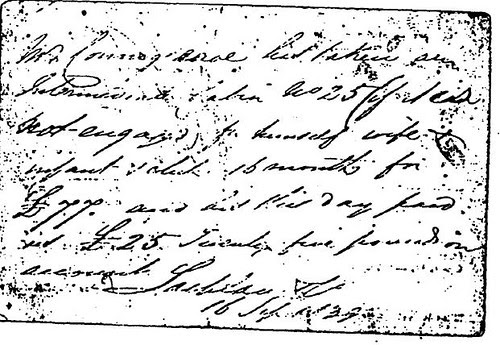 Mr has taken an
Intermediate Cabin No 25 (if it is
not engaged) for himself wife &
infant child 16 months for
£77. and has this day paid
me £25 Twenty five pounds on
account
16 Sep 1839